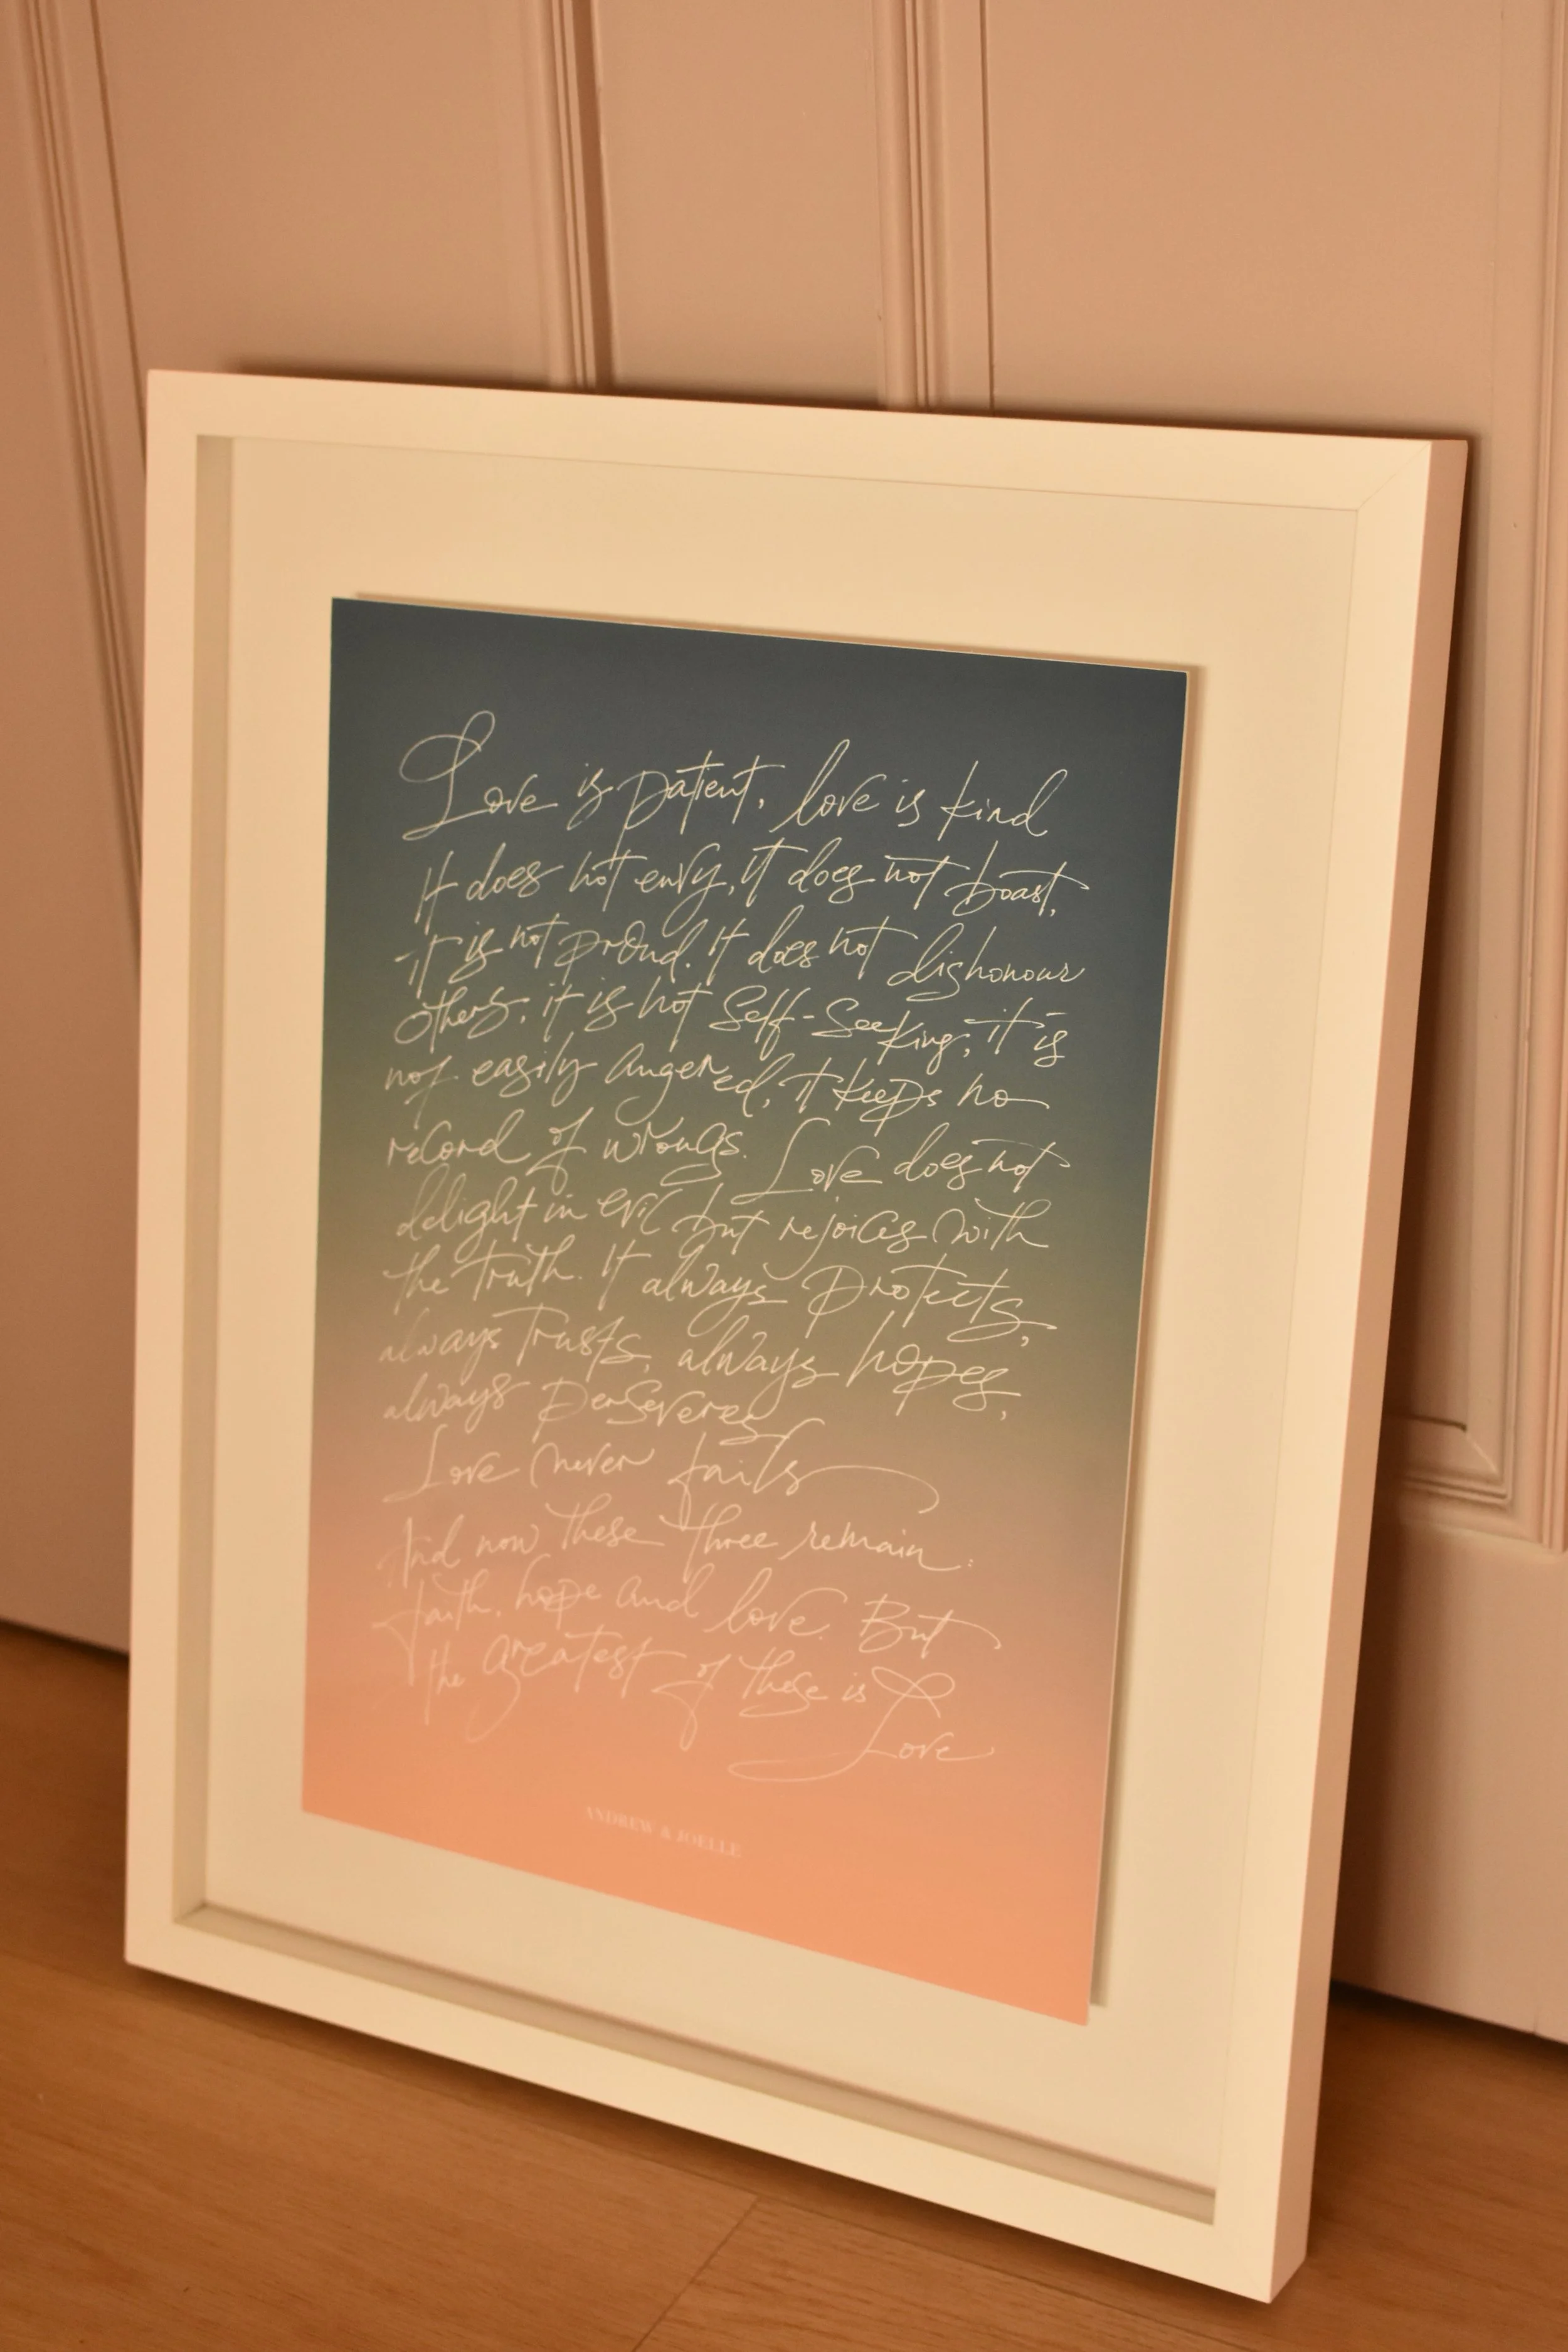 Love is patient, love is kind
It does not envy, it does not boast,
it is not proud. It does not dishonour
others, it is not self-seeking, it is
not easily angered, it keeps no
record of wrongs. Love does not
delight in evil but rejoices with
the truth. It always protects,
always trusts, always hopes,
always perseveres
Love never fails
And now these three remain:
faith, hope and love. But
the greatest of these is
Love
ANDREW & JOELLE